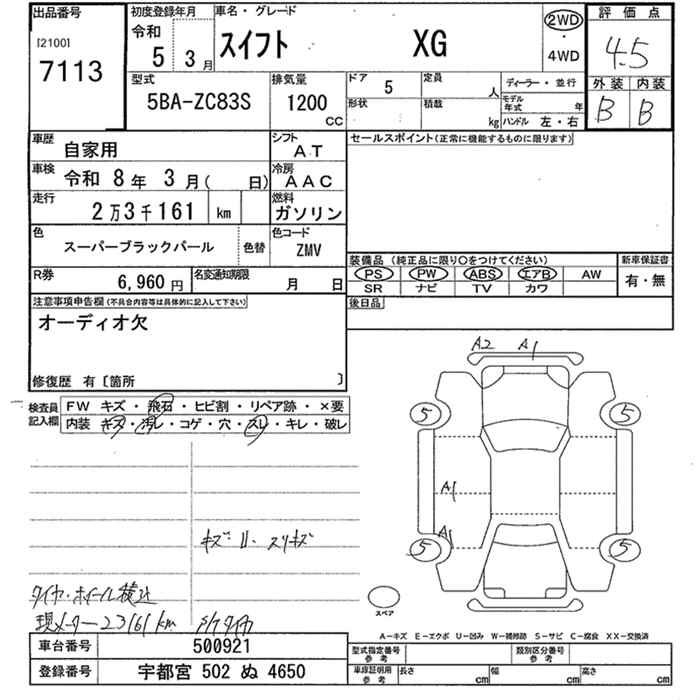 出品番号
[2100]
7113
初度登録年月
令和
5 3月
車名・グレード
スイフト XG
2WD
・
4WD
評価点
4.5
外装 内装
B B
型式
5BA-ZC83S
排気量
1200
CC
ドア 5
形状
定員 人
積載 kg
ディーラー・並行
モデル年式 年
ハンドル 左・右
車歴 自家用
シフト AT
車検 令和 8年 3月( 日)
冷房 AAC
走行 2万3千161 km
燃料 ガソリン
色 スーパーブラックパール
色替
色コード ZMV
R券 6,960円
名変通知期限 月 日
注意事項申告欄(不具合内容等は具体的に記入して下さい)
オーディオ欠
修復歴 有〔箇所 〕
セールスポイント(正常に機能するものに限ります)
装備品 (純正品に限り〇をつけてください)
PS PW ABS エアB AW
SR ナビ TV カワ
新車保証書
有・無
後日品
検査員記入欄
FW キズ・飛石・ヒビ割・リペア跡・×要
内装 キズ・汚レ・コゲ・穴・スレ・キレ・破レ
キズ・U・スリキズ
タイヤ・ホイール積込
現メーター23161km
A2 A1
5 5
A1
A1
5 5
スペア
A-キズ E-エクボ U-凹み W-補修跡 S-サビ C-腐食 XX-交換済
車台番号 500921
登録番号 宇都宮 502 ぬ 4650
型式指定番号
参考
類別区分番号
参考
車庫証明用
参考
長さ cm
幅 cm
高さ cm